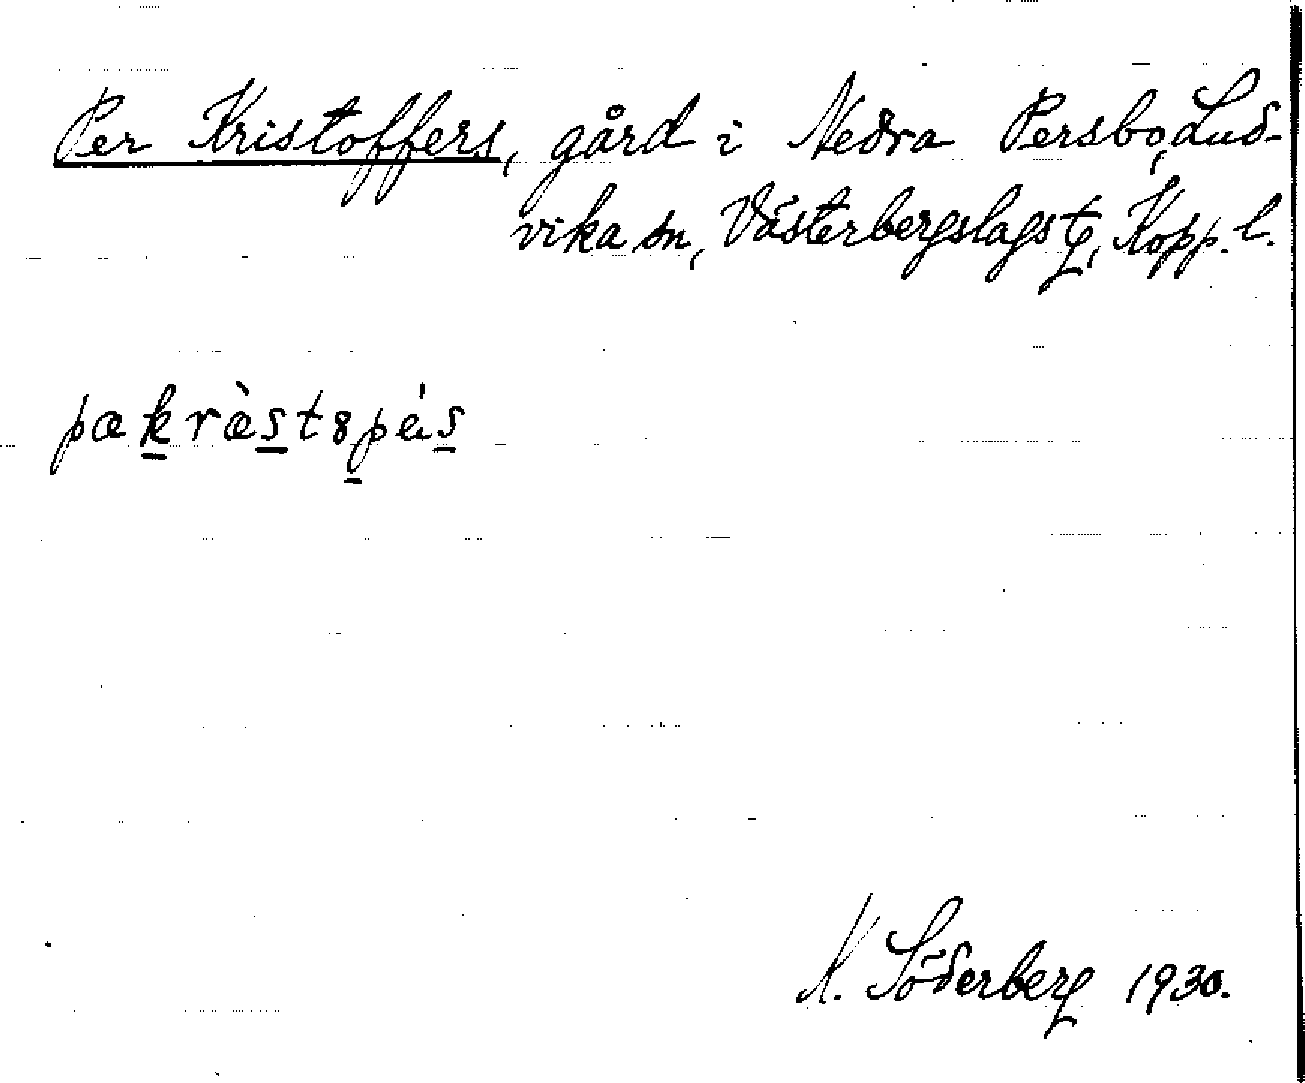 Per Kristoffers, gård i Nedra Persbo, Lud-
vika sn, Västerbergslags tg, Kopp. l.
pækræ̀stopés
K. Söderberg 1930.